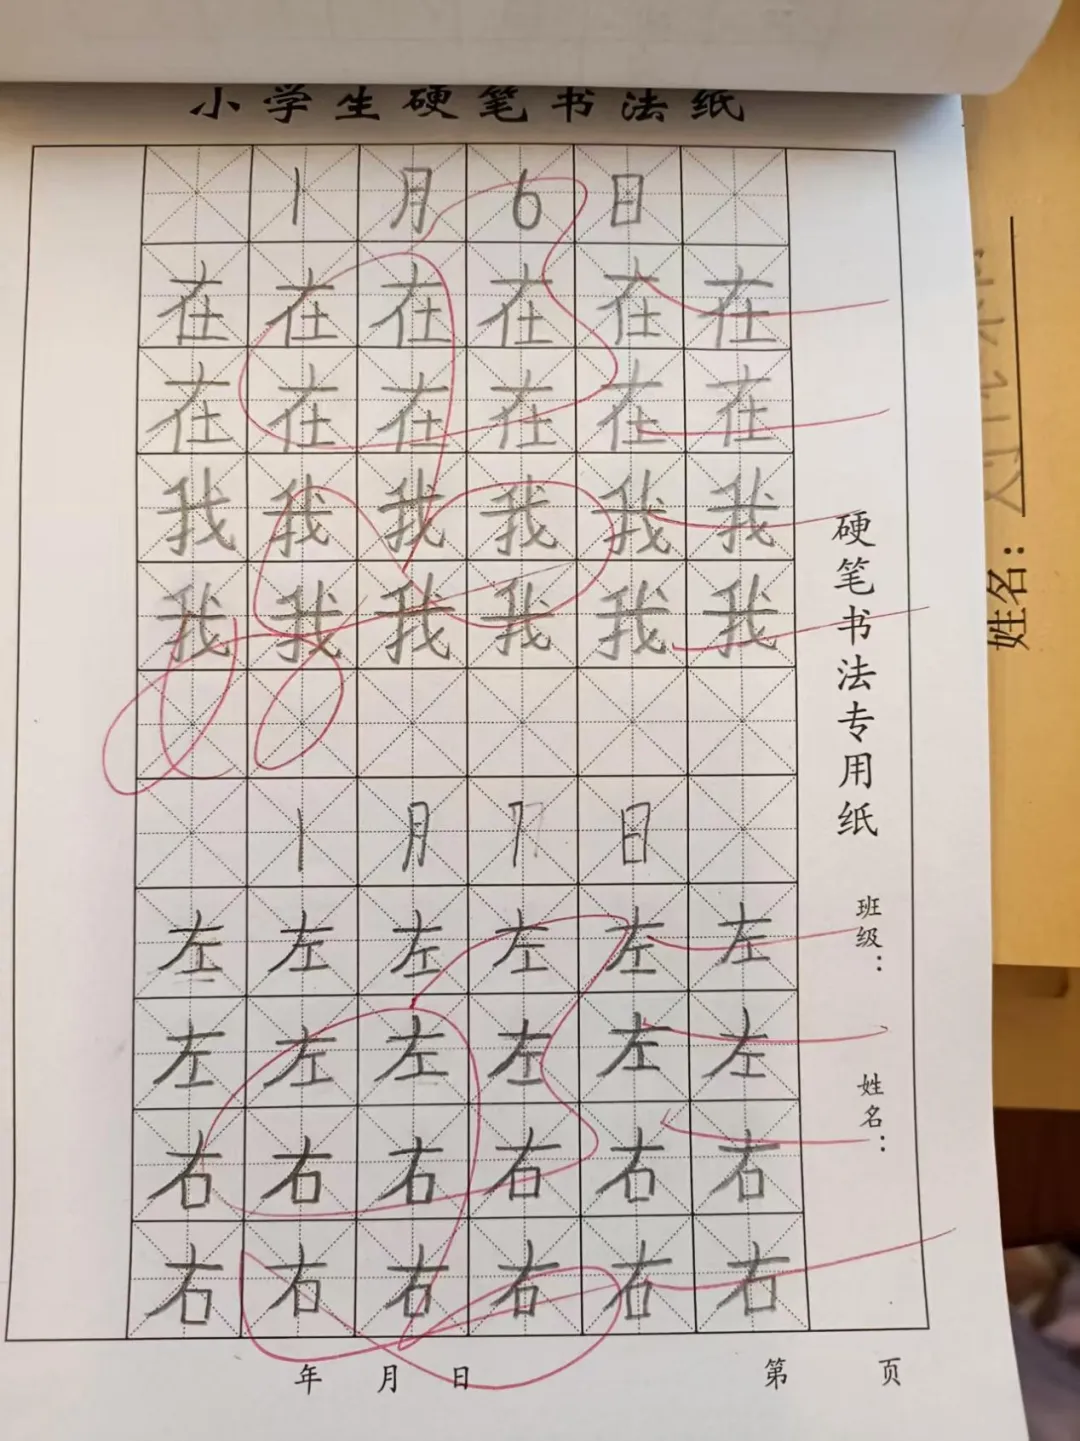 小学生硬笔书法纸
1月6日
在在在在在在
在在在在在在
我我我我我我
我我我我我我
1月7日
左左左左左左
左左左左左左
右右右右右右
右右右右右右
年 月 日 第 页
硬笔书法专用纸
班级：
姓名：
姓名：